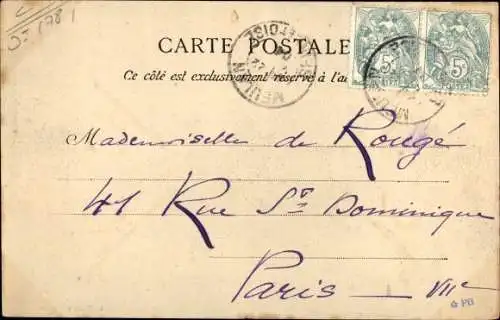 CARTE POSTALE
Ce côté est exclusivement réservé à l'a
MEULAN
5c 5c
Mademoiselle de Rougé
41 Rue St Dominique
Paris — VIIe
PB